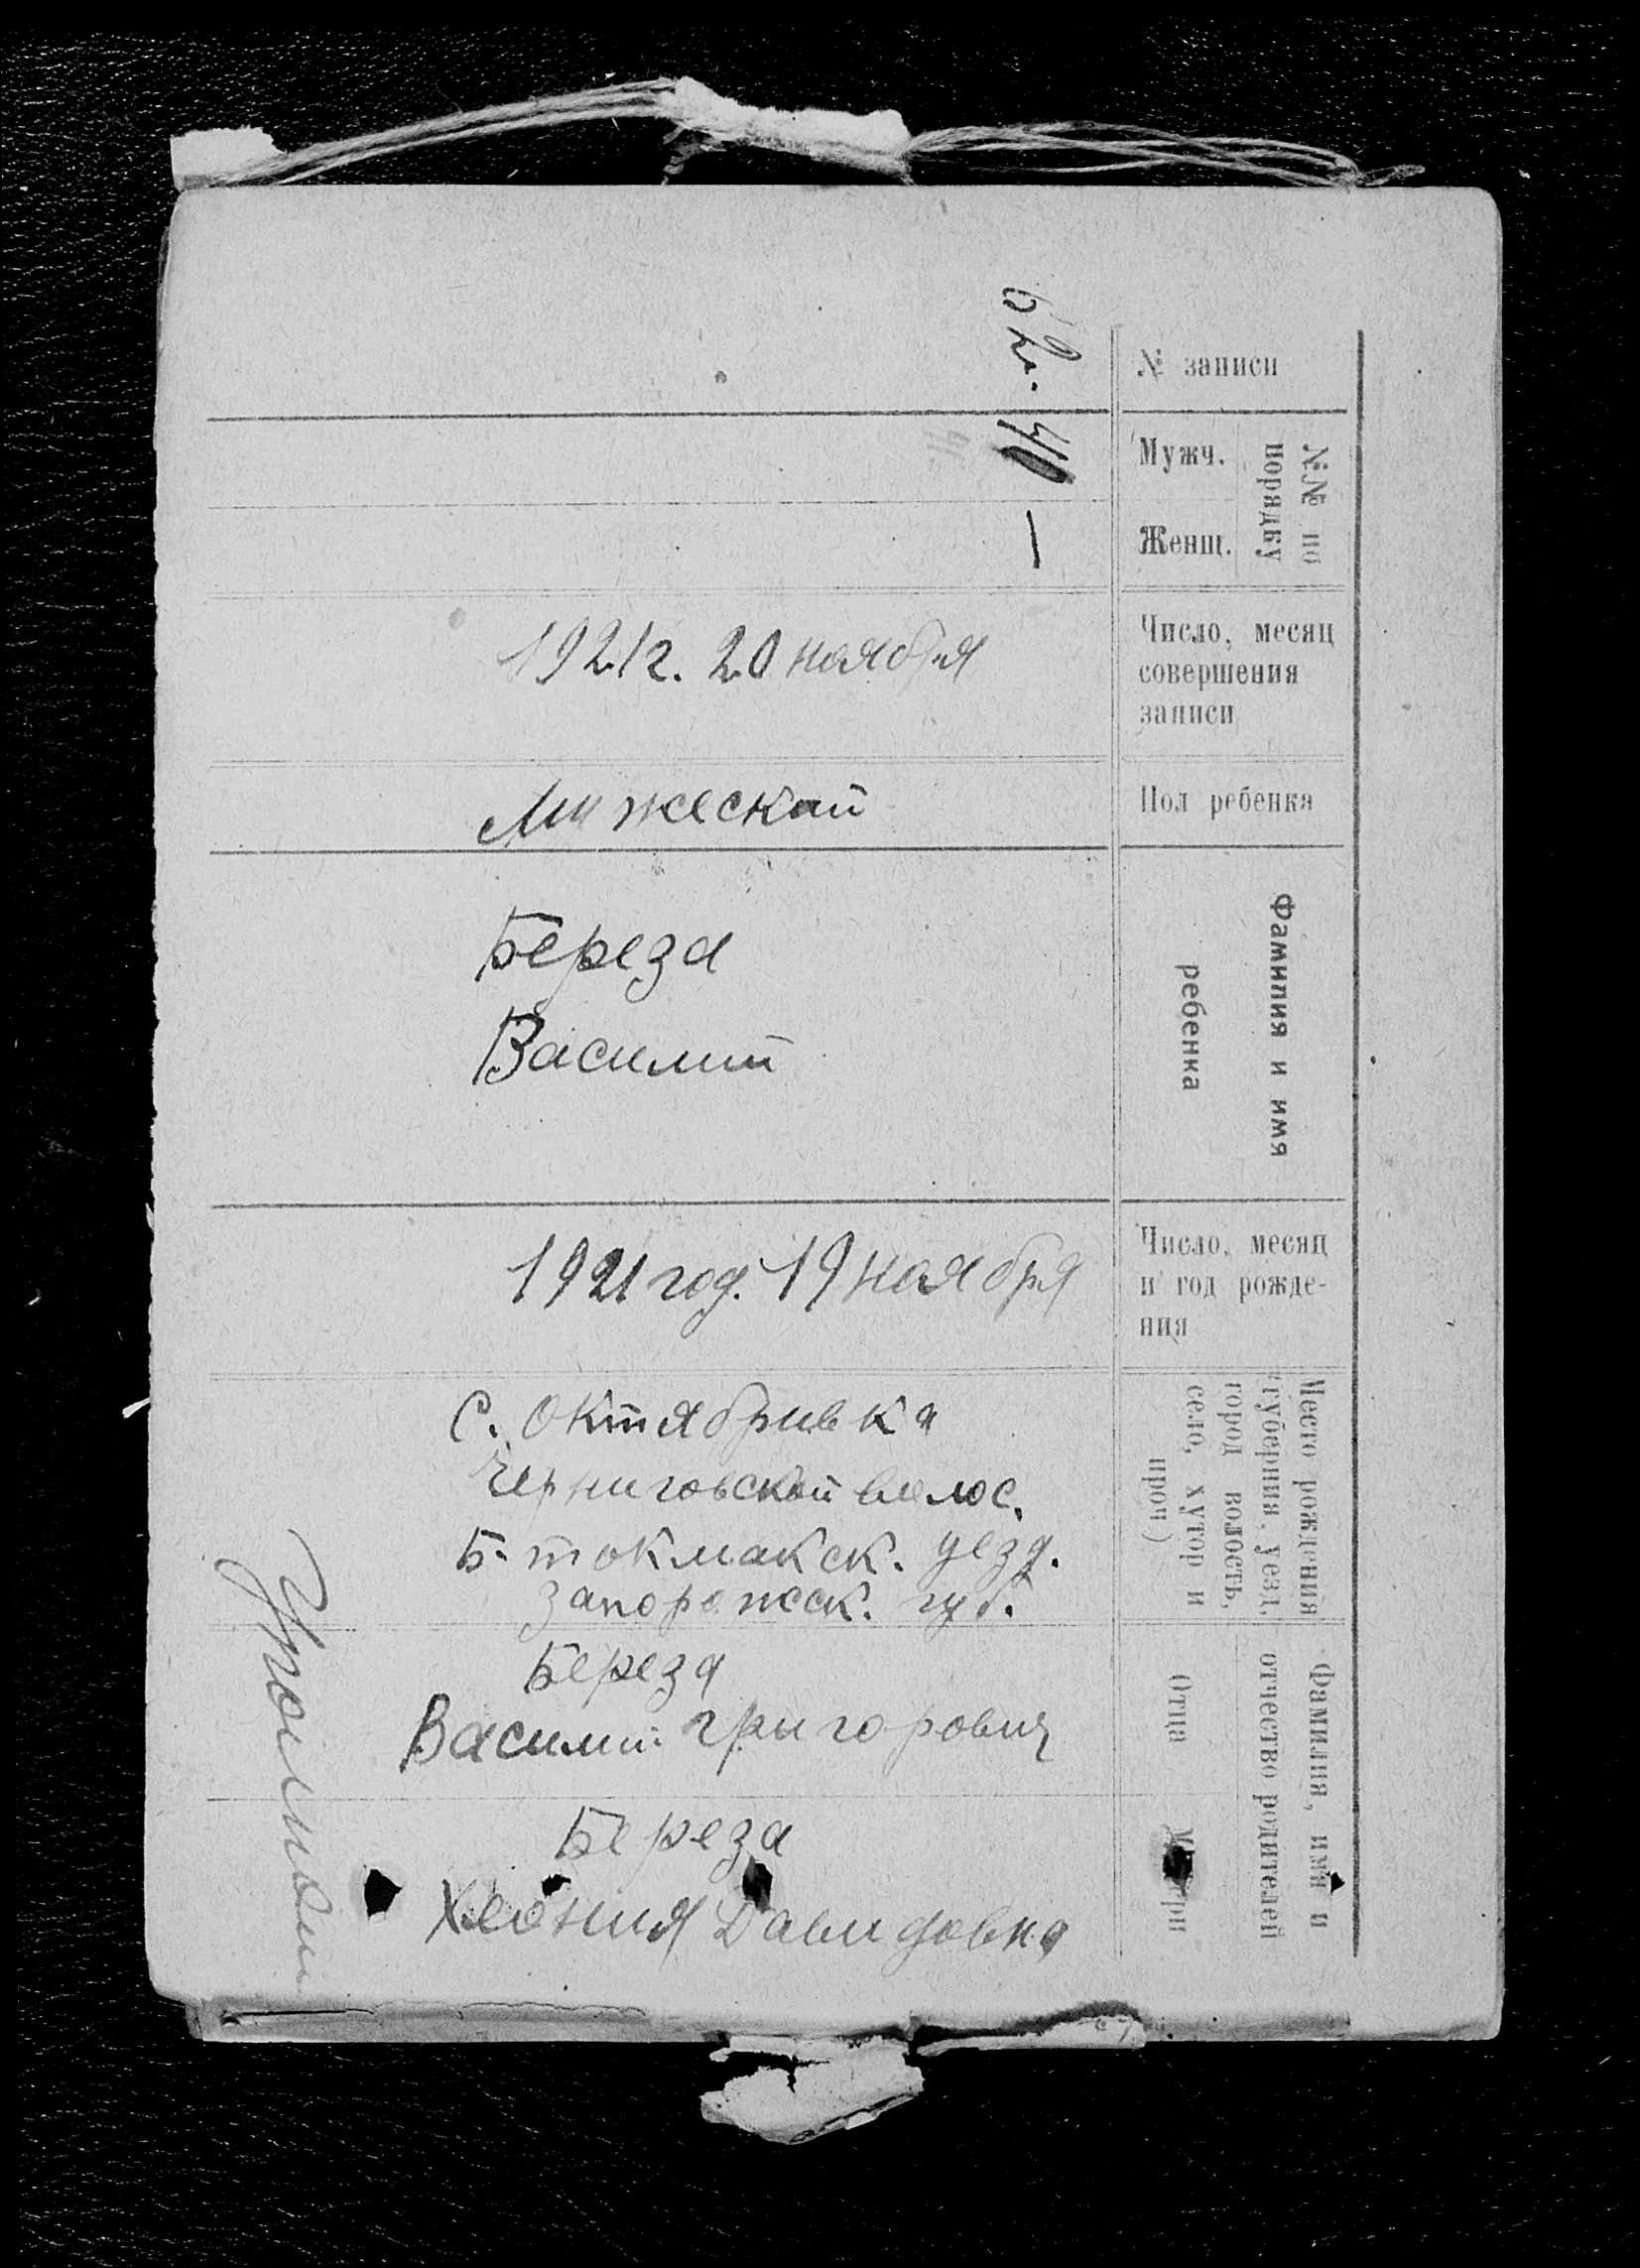 № записи
62.
№№ по порядку
Мужч.
40
Женщ.
—
Число, месяц
совершения
записи
1921г. 20 ноября
Пол ребенка
Мужеской
Фамилия и имя
ребенка
Береза
Василий
Число, месяц
и год рожде-
ния
1921 год. 19 ноября
Место рождения
(губерния, уезд,
город волость,
село, хутор и
проч)
С. Октябривка
Черниговской волос.
Б. токмакск. уезд.
Запорожск. губ.
Фамилия, имя и
отчество родителей
Отца
Береза
Василий григорович
Матери
Береза
Давидовна